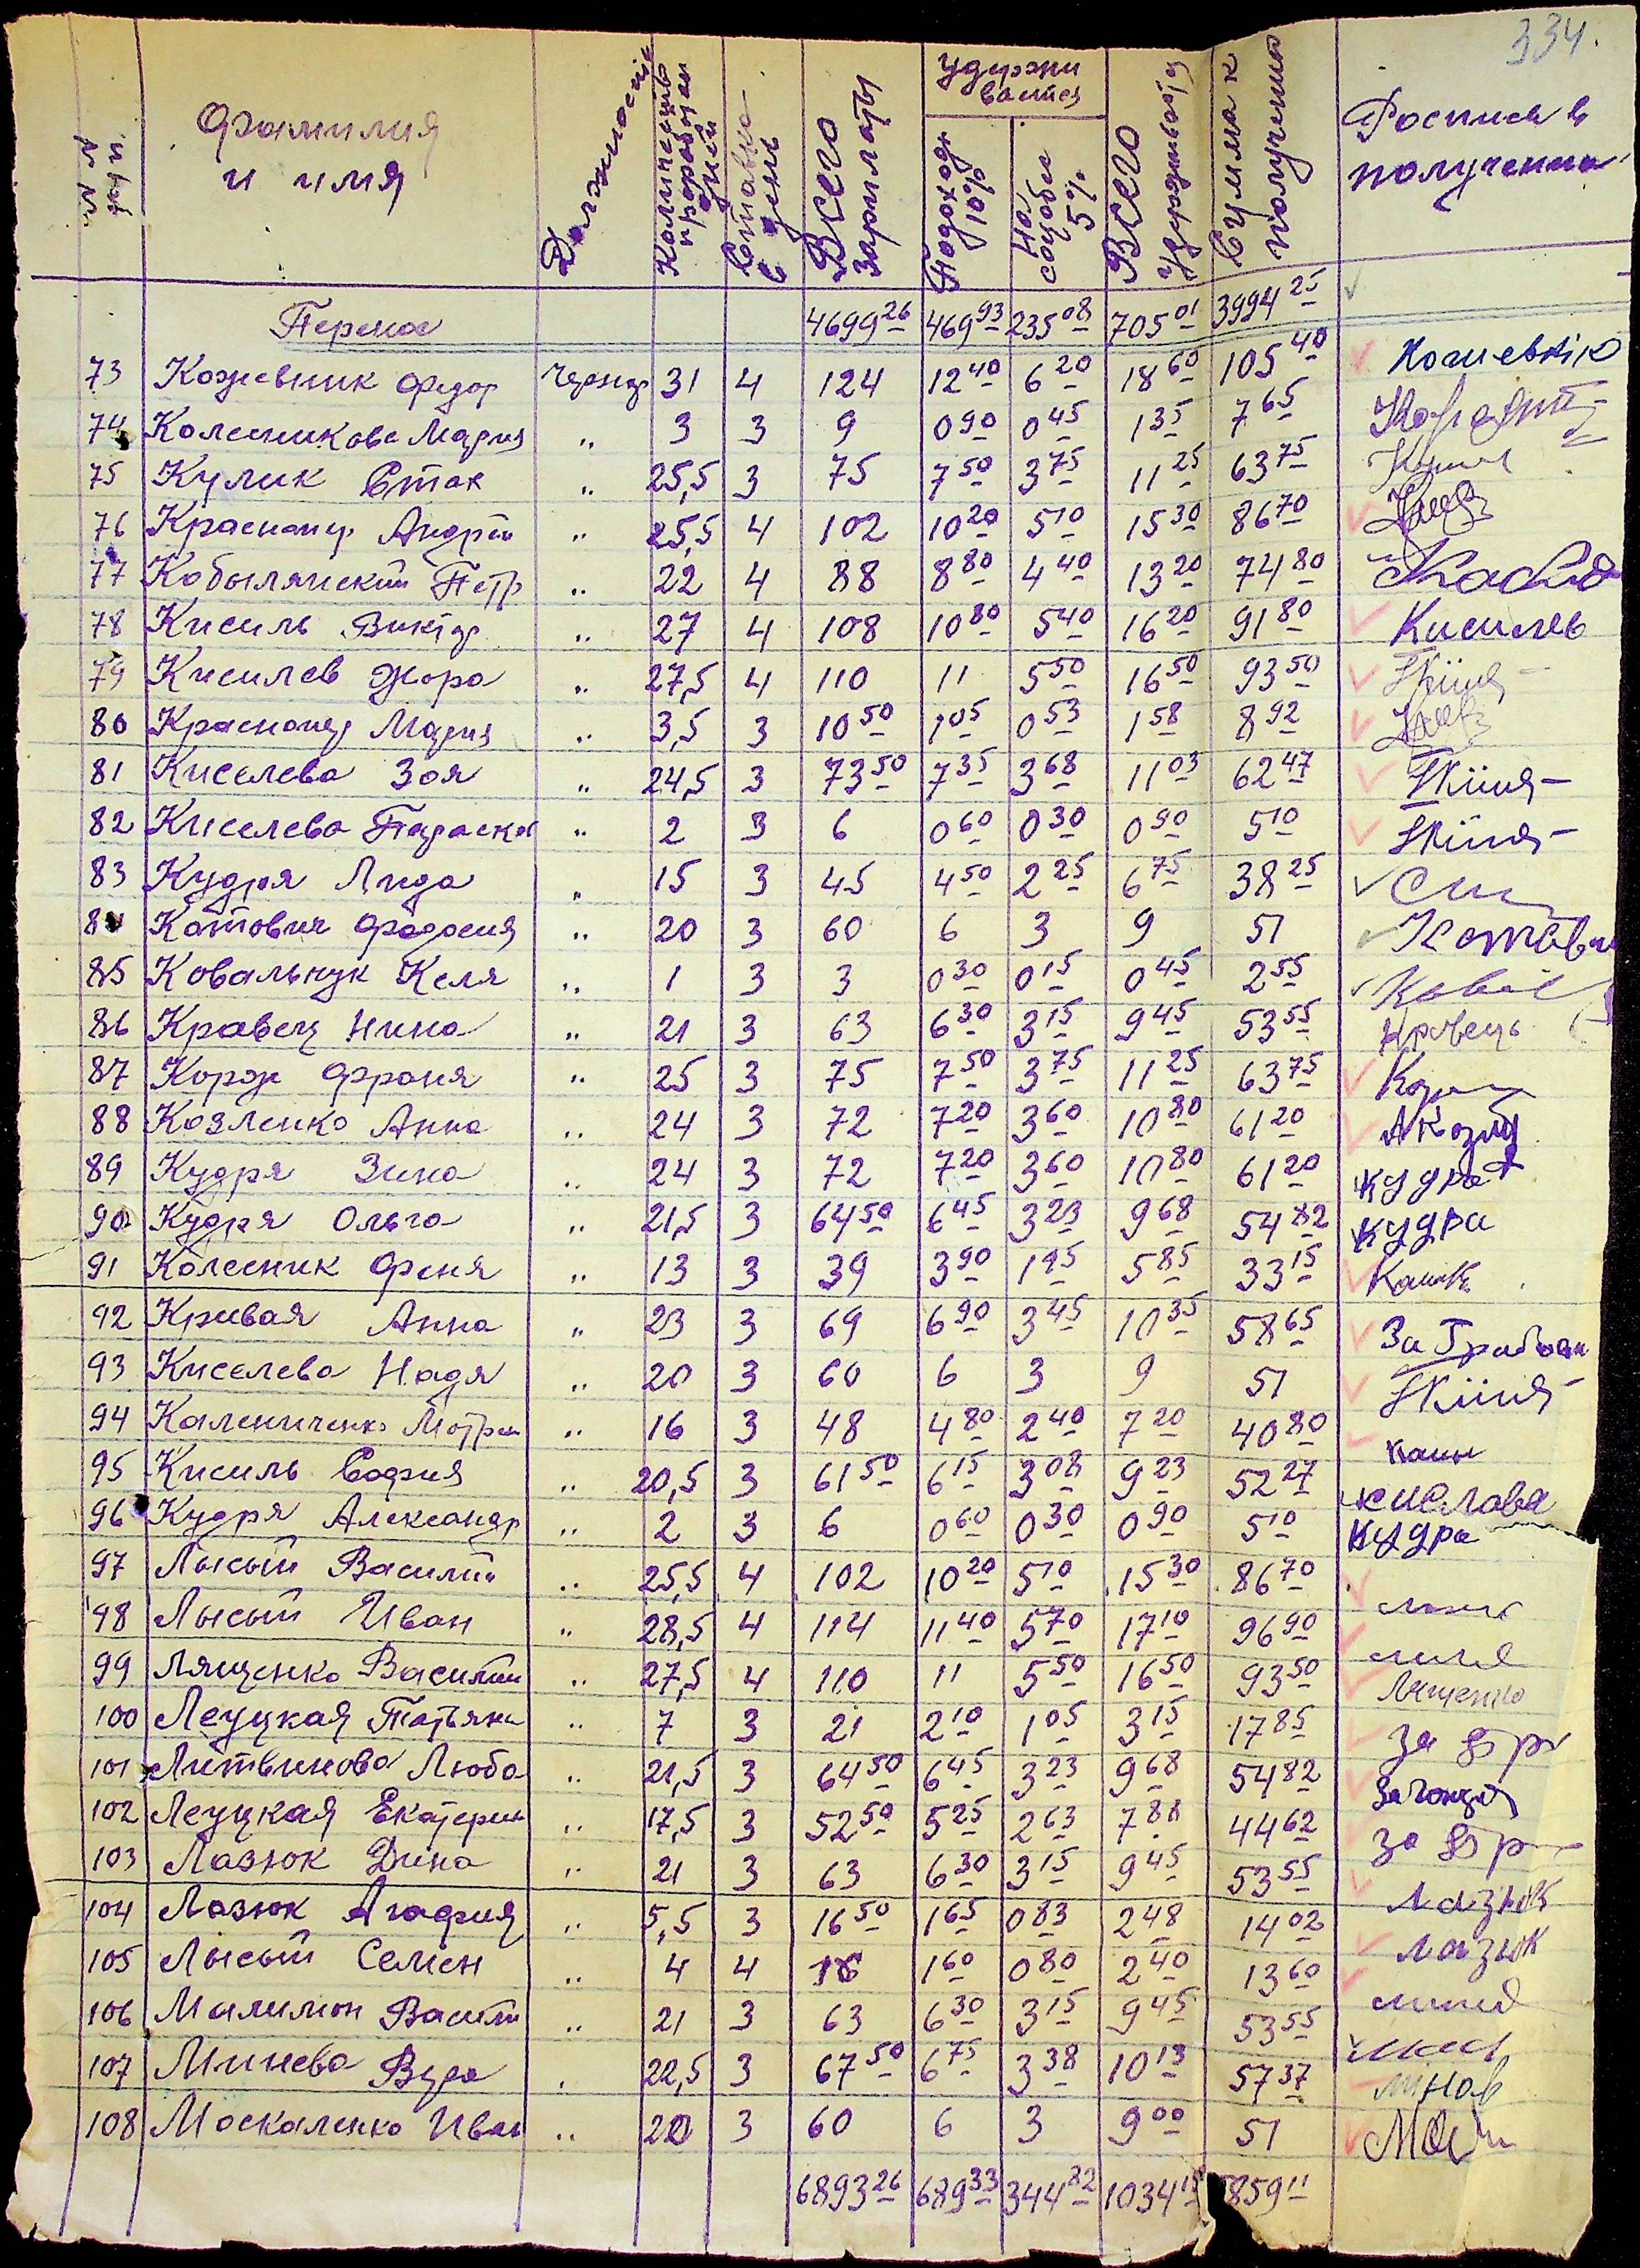 334.
№№ п/пор Фамилия и имя Должность Количество проработан дней Ставка в день Всего зарплаты Удержи вается Подоходн 10% На соцобеc 5% Всего удерживается Сумма к получению Роспись в получении
Перенос 4699 26 469 93 235 08 705 01 3994 25
73 Кожевник Федор Чернор 31 4 124 12 40 6 20 18 60 105 40
74 Колесникова Мария „ 3 3 9 0 90 0 45 1 35 7 65
75 Кулик Стах „ 25,5 3 75 7 50 3 75 11 25 63 75
76 Краснонор Андрей „ 25,5 4 102 10 20 5 10 15 30 86 70
77 Кобылянский Петр „ 22 4 88 8 80 4 40 13 20 74 80
78 Кисиль Виктор „ 27 4 108 10 80 5 40 16 20 91 80 Кисилев
79 Кисилев Жора „ 27,5 4 110 11 5 50 16 50 93 50
80 Краснонор Мария „ 3,5 3 10 50 1 05 0 53 1 58 8 92
81 Киселева Зоя „ 24,5 3 73 50 7 35 3 68 11 03 62 47
82 Киселева Параска „ 2 3 6 0 60 0 30 0 90 5 10
83 Кудря Лида „ 15 3 45 4 50 2 25 6 75 38 25
84 Котович Федосия „ 20 3 60 6 3 9 51 Котович
85 Ковальчук Келя „ 1 3 3 0 30 0 15 0 45 2 55
86 Кравец Нина „ 21 3 63 6 30 3 15 9 45 53 55 Кравець
87 Корж Фроня „ 25 3 75 7 50 3 75 11 25 63 75
88 Козленко Анна „ 24 3 72 7 20 3 60 10 80 61 20 А Козл
89 Кудря Зина „ 24 3 72 7 20 3 60 10 80 61 20 Кудра
90 Кудря Ольга „ 21,5 3 64 50 6 45 3 23 9 68 54 82 Кудра
91 Колесник Феня „ 13 3 39 3 90 1 95 5 85 33 15
92 Кривая Анна „ 23 3 69 6 90 3 45 10 35 58 65 За
93 Киселева Надя „ 20 3 60 6 3 9 51
94 Калениченко Мотрен „ 16 3 48 4 80 2 40 7 20 40 80
95 Кисиль София „ 20,5 3 61 50 6 15 3 08 9 23 52 27 кислова
96 Кудря Александр „ 2 3 6 0 60 0 30 0 90 5 10 Кудра
97 Лысый Василий „ 25,5 4 102 10 20 5 10 15 30 86 70
98 Лысый Иван „ 28,5 4 114 11 40 5 70 17 10 96 90
99 Лященко Василий „ 27,5 4 110 11 5 50 16 50 93 50 Лященко
100 Леуцкая Татьяна „ 7 3 21 2 10 1 05 3 15 17 85 за
101 Литвинова Люба „ 21,5 3 64 50 6 45 3 23 9 68 54 82
102 Леуцкая Екатерин „ 17,5 3 52 50 5 25 2 63 7 88 44 62 за
103 Лазюк Дина „ 21 3 63 6 30 3 15 9 45 53 55 Лазюк
104 Лазюк Агафия „ 5,5 3 16 50 1 65 0 83 2 48 14 02 Лазюк
105 Лысый Семен „ 4 4 16 1 60 0 80 2 40 13 60
106 Малимон Васили „ 21 3 63 6 30 3 15 9 45 53 55
107 Минева Вера „ 22,5 3 67 50 6 75 3 38 10 13 57 37 Мінов
108 Москаленко Иван „ 20 3 60 6 3 9 00 51
6893 26 689 33 344 82 1034 15 5859 11